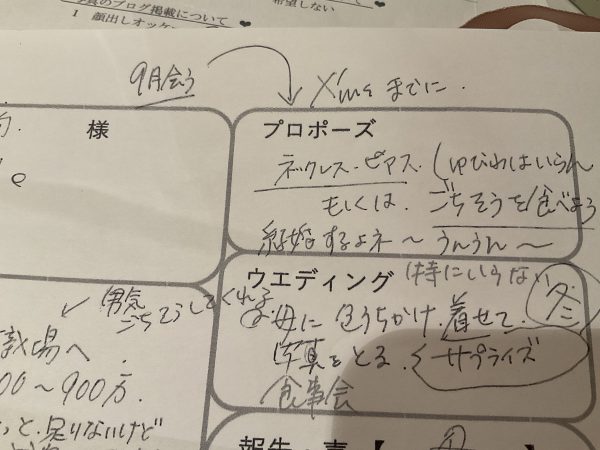 のブログ掲載について
1 顔出しオッケ
希望しない
9月会う
X'masまでに.
様
プロポーズ
ネックレス・ピアス.(ゆびわはいらん
もしくは.ごちそうを食べよう
結婚するよネ〜うんうん〜
ウエディング(特にいらない
冬
母に色うちかけ.着せて.
写真をとる.サプライズ
食事会
男気
ごちそうしてくれる
場へ
00〜900万.
っと.足りないけど
報告・喜【